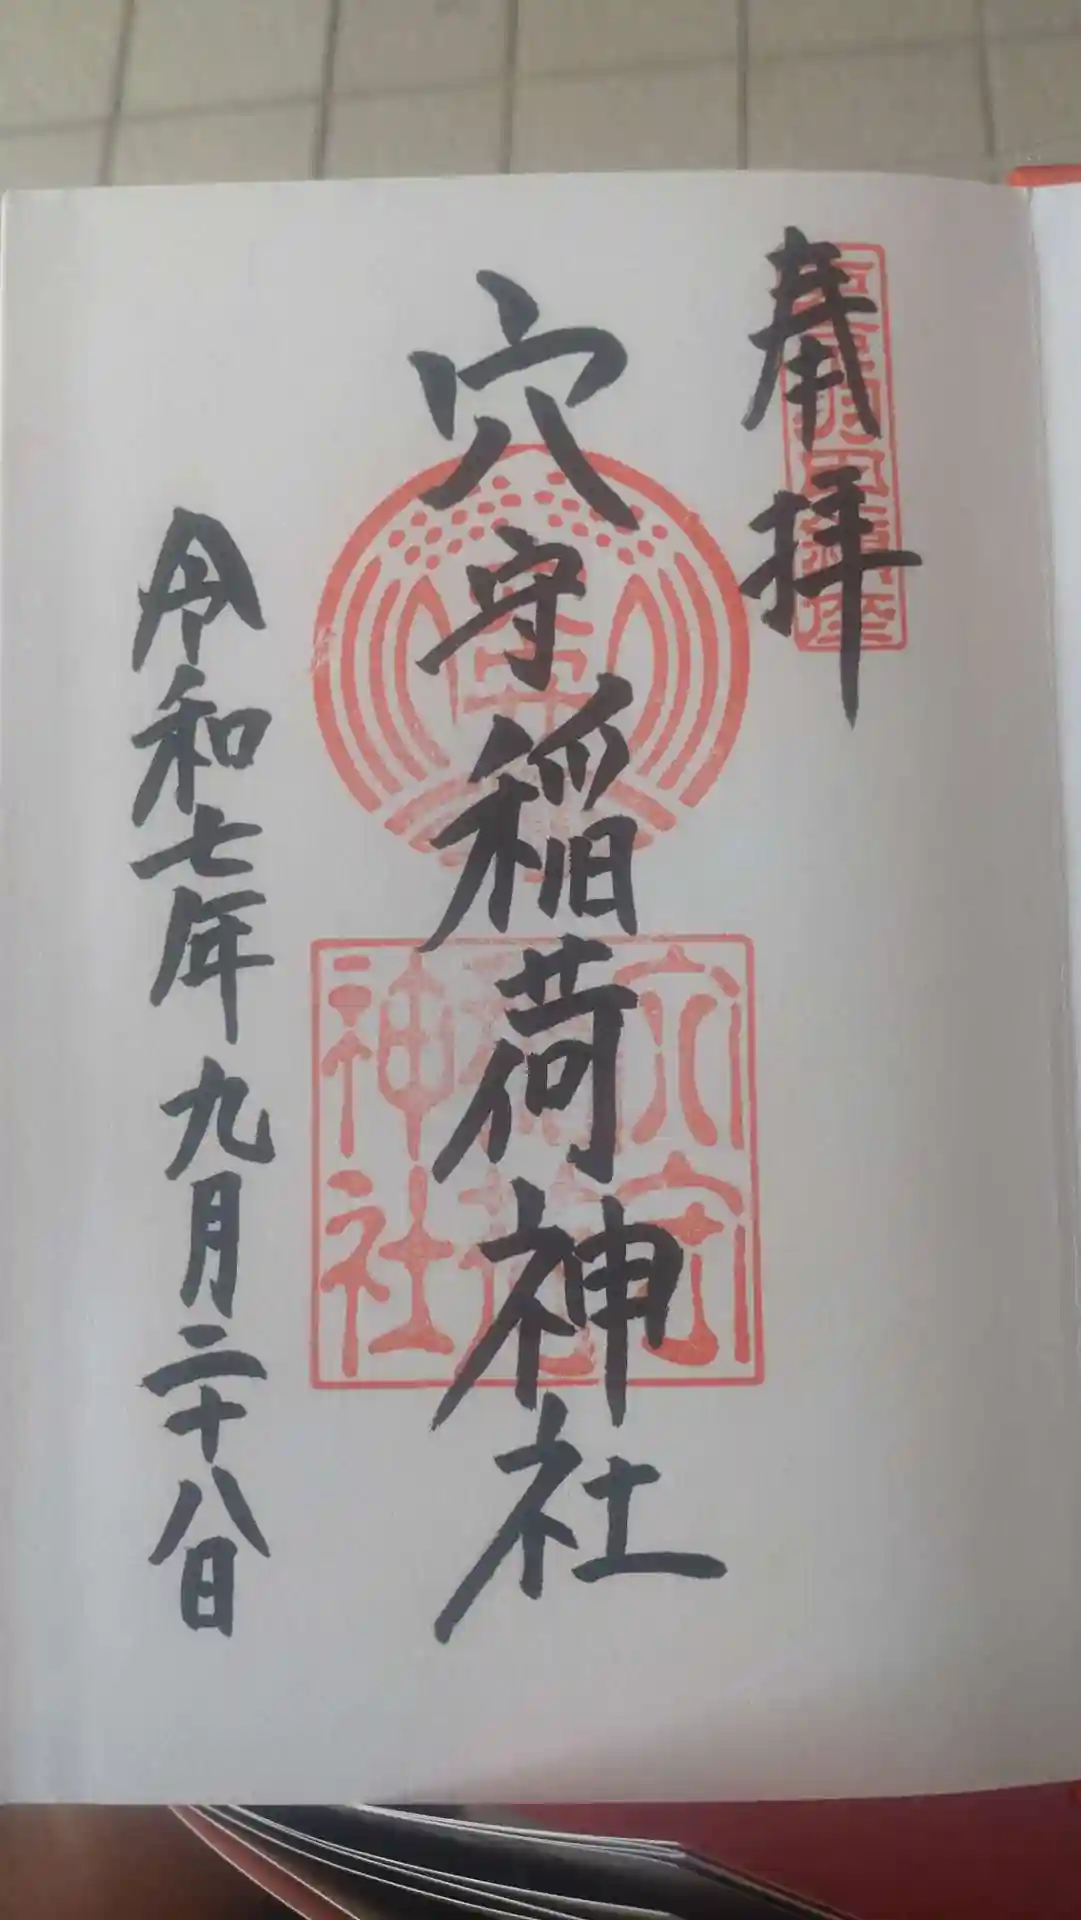 奉拝
穴守稲荷神社
穴守
稲荷
神社
令和七年九月二十八日